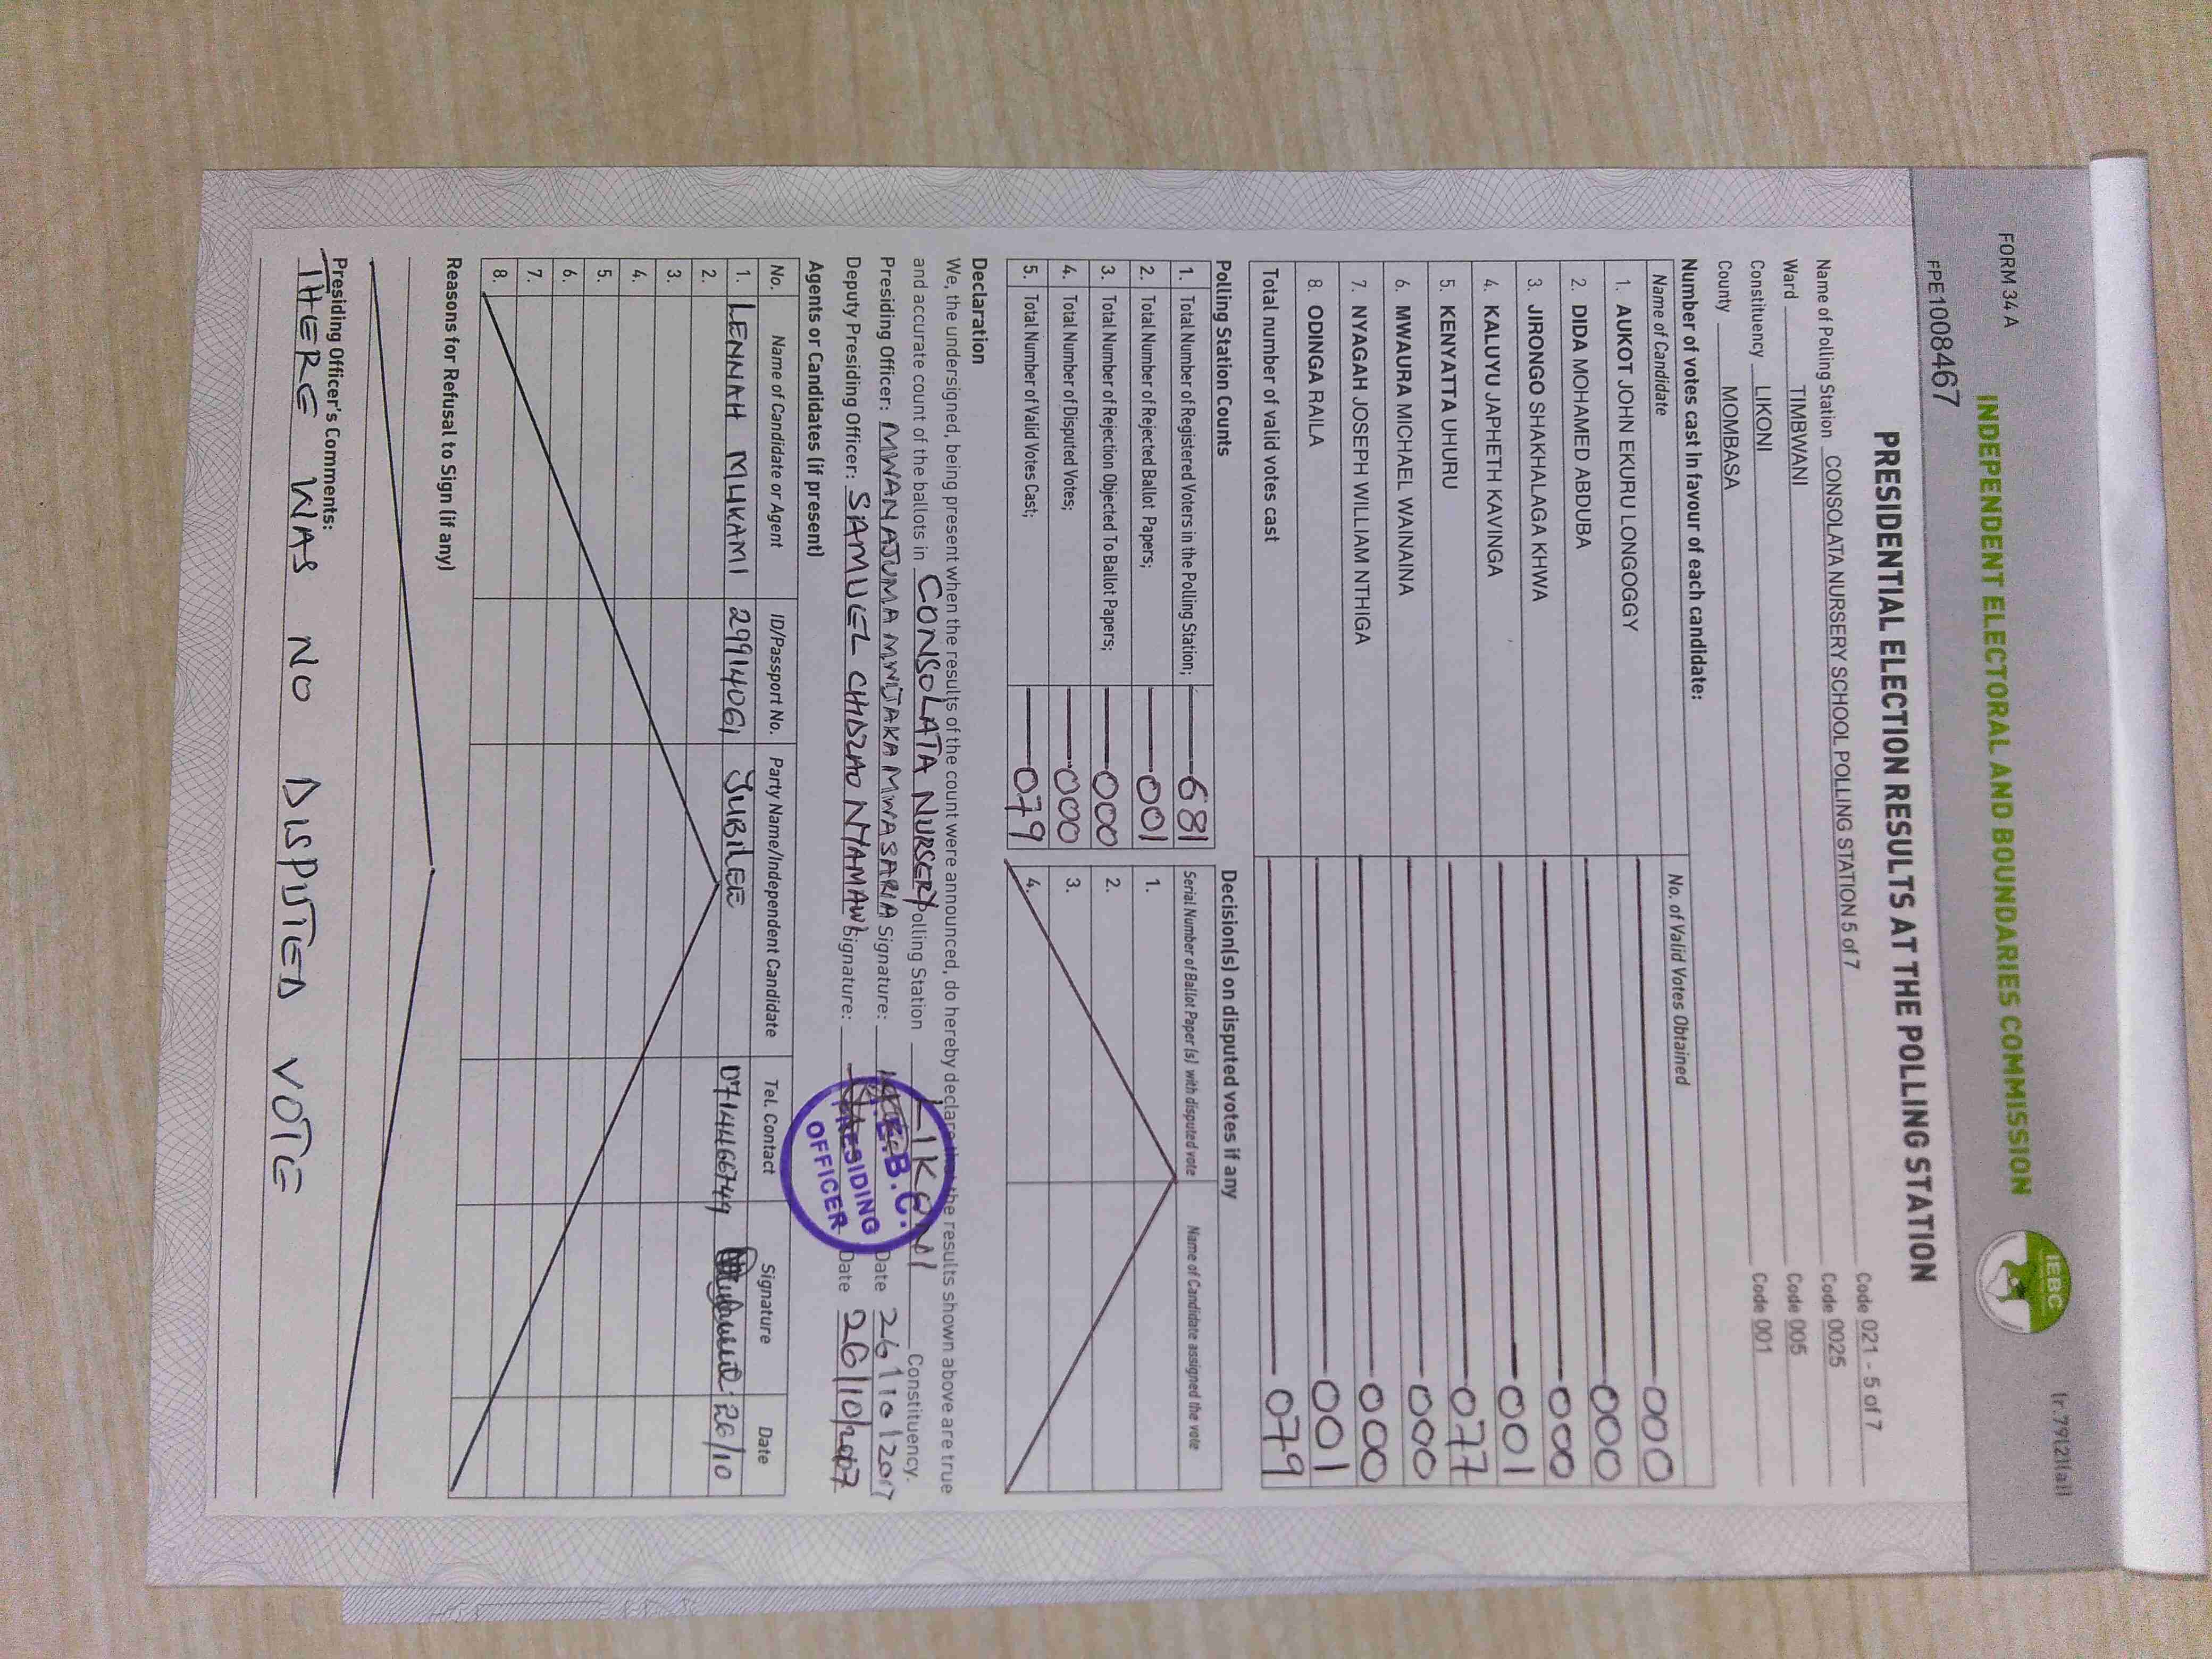 FORM 34 A
INDEPENDENT ELECTORAL AND BOUNDARIES COMMISSION
IEBC
(r.79(2)(a))
FPE1008467
PRESIDENTIAL ELECTION RESULTS AT THE POLLING STATION
Name of Polling Station CONSOLATA NURSERY SCHOOL POLLING STATION 5 of 7 Code 021 - 5 of 7
Ward TIMBWANI Code 0025
Constituency LIKONI Code 005
County MOMBASA Code 001
Number of votes cast in favour of each candidate:
Name of Candidate No. of Valid Votes Obtained
1. AUKOT JOHN EKURU LONGOGGY 000
2. DIDA MOHAMED ABDUBA 000
3. JIRONGO SHAKHALAGA KHWA 000
4. KALUYU JAPHETH KAVINGA 001
5. KENYATTA UHURU 077
6. MWAURA MICHAEL WAINAINA 000
7. NYAGAH JOSEPH WILLIAM NTHIGA 000
8. ODINGA RAILA 001
Total number of valid votes cast 079
Polling Station Counts Decision(s) on disputed votes if any
Serial Number of Ballot Paper (s) with disputed vote Name of Candidate assigned the vote
1. Total Number of Registered Voters in the Polling Station; 681
2. Total Number of Rejected Ballot Papers; 001 1.
3. Total Number of Rejection Objected To Ballot Papers; 000 2.
4. Total Number of Disputed Votes; 000 3.
5. Total Number of Valid Votes Cast; 079 4.
Declaration
We, the undersigned, being present when the results of the count were announced, do hereby declare that the results shown above are true
and accurate count of the ballots in CONSOLATA NURSERY Polling Station LIKONI Constituency.
Presiding Officer: MWANAJUMA MWIJAKA MWASARIA Signature: Date 26/10/2017
Deputy Presiding Officer: SAMUEL CHIDZAO NYAMAWI Signature: Date 26/10/2017
I.E.B.C.
PRESIDING
OFFICER
Agents or Candidates (if present)
No. Name of Candidate or Agent ID/Passport No. Party Name/Independent Candidate Tel. Contact Signature Date
1. LENNAH MUKAMI 29914061 JUBILEE 0714466749 26/10
2.
3.
4.
5.
6.
7.
8.
Reasons for Refusal to Sign (if any)
Presiding Officer's Comments:
THERE WAS NO DISPUTED VOTE